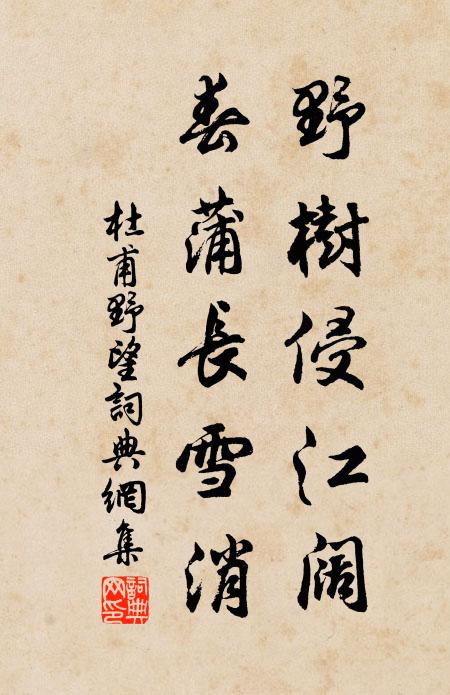 野樹侵江阔
春蒲長雪消
杜甫野望詞典網集
詞典
网印